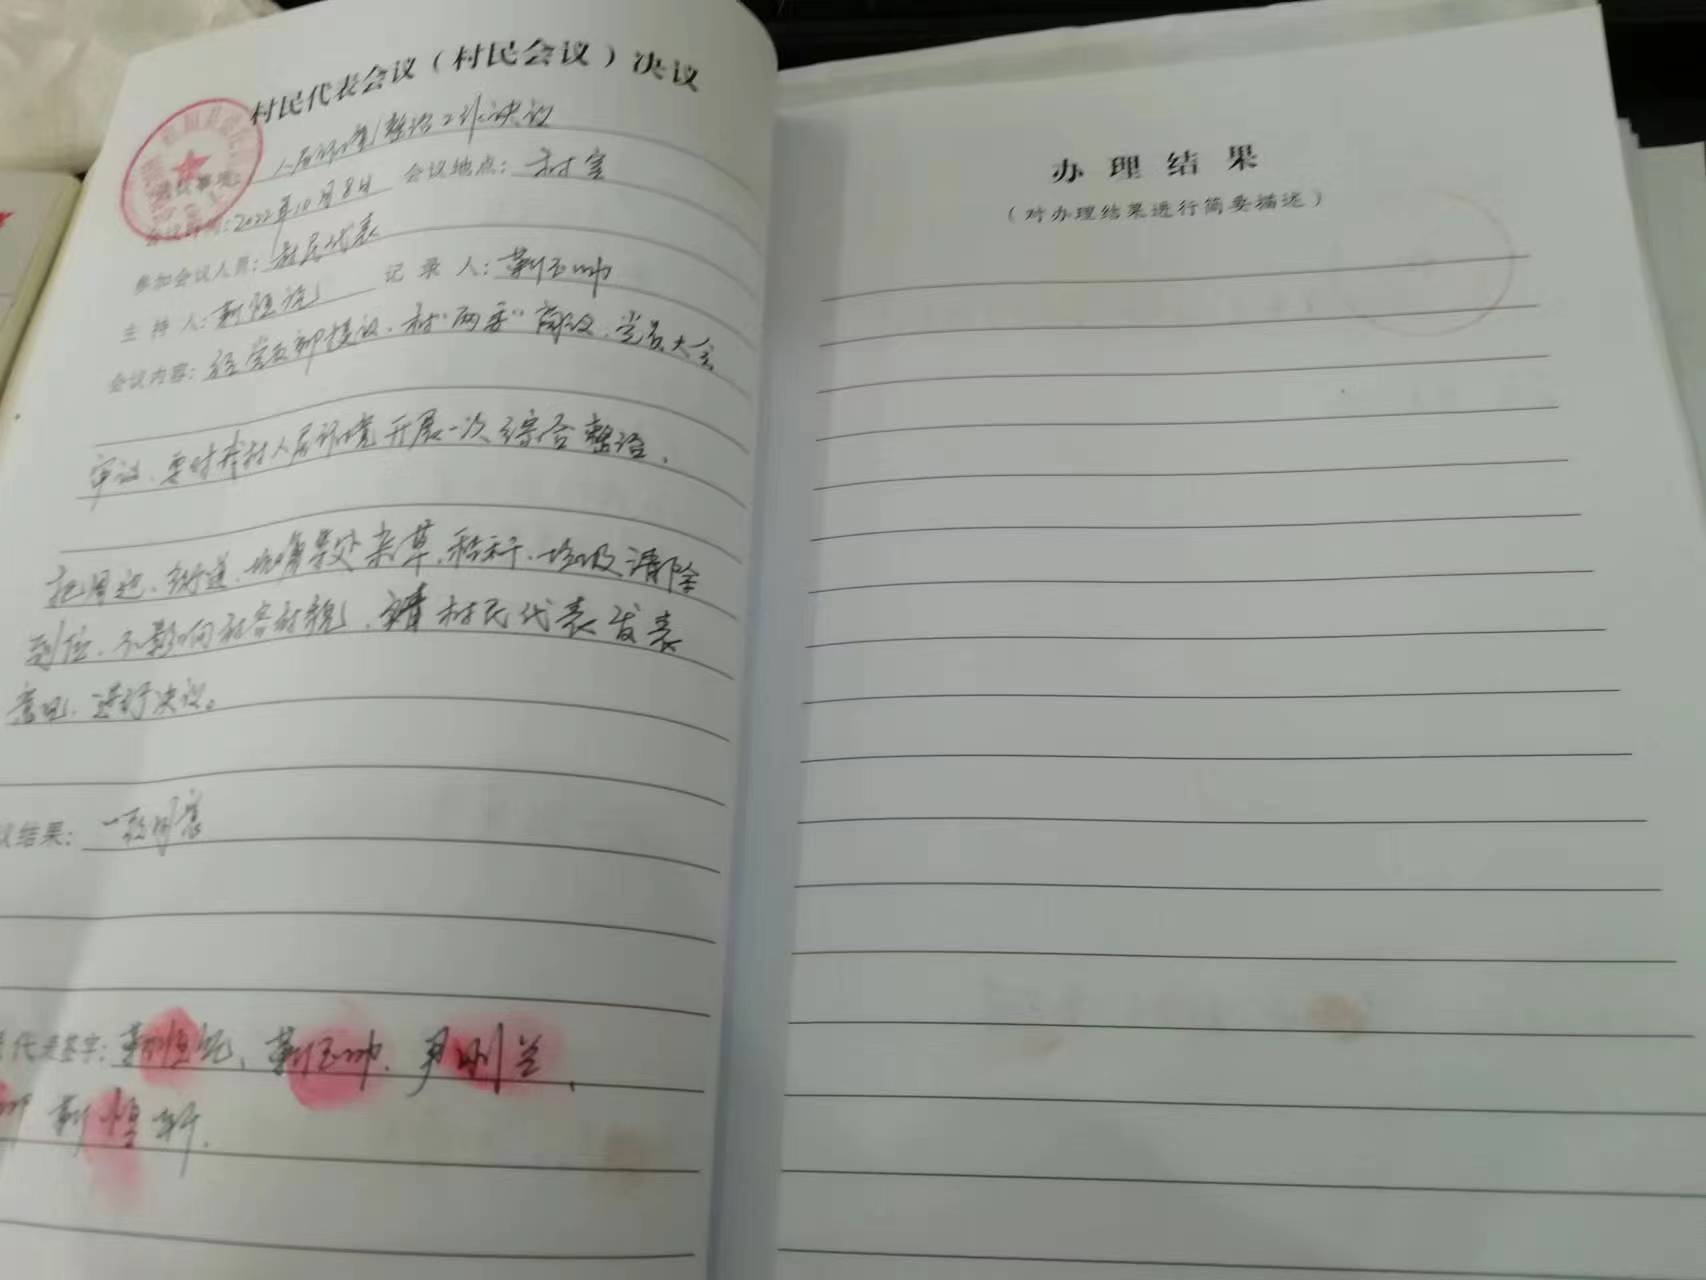 村民代表会议（村民会议）决议
人居环境整治工作决议
会议时间：2022年10月8日 会议地点：村室
参加会议人员：村民代表
主持人：靳恒 记录人：靳玉帅
会议内容：经党支部提议、村“两委”商议、党员大会
审议、要对我村人居环境开展一次综合整治、
把周边、街道、墙角等处杂草、秸秆、垃圾清除
到位、不影响村容村貌、请村民代表发表
意见、进行决议。
议结果：一致同意
代表签字：靳恒 、靳玉帅、尹刚兰、
靳 新.
办理结果
（对办理结果进行简要描述）